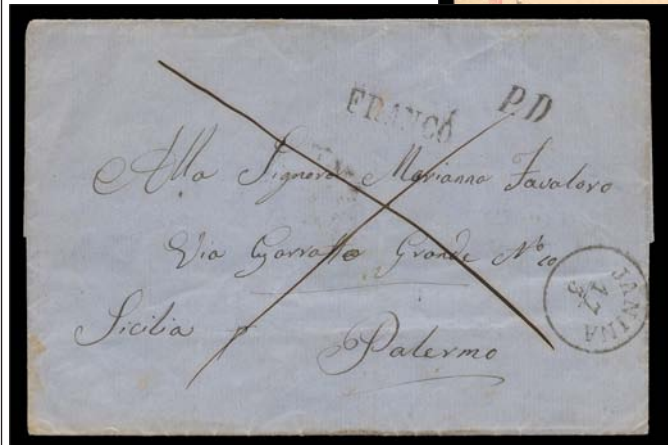 FRANCÓ
P.D
Alla Signora Marianna Favaloro
Via Garraffo Grande No
Sicilia Palermo
JANINA
17
3